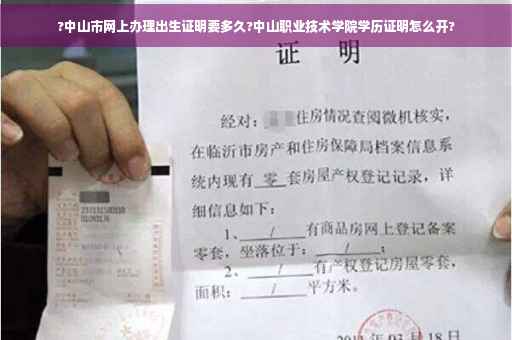 ?中山市网上办理出生证明要多久?中山职业技术学院学历证明怎么开?
证 明
经对：住房情况查阅微机核实，
在临沂市房产和住房保障局档案信息系
统内现有 零 套房屋产权登记记录，详
细信息如下：
1、 / 有商品房网上登记备案
零套，坐落位于： / ；
2、 / 有产权登记房屋零套，
面积： / 平方米。
03月18日